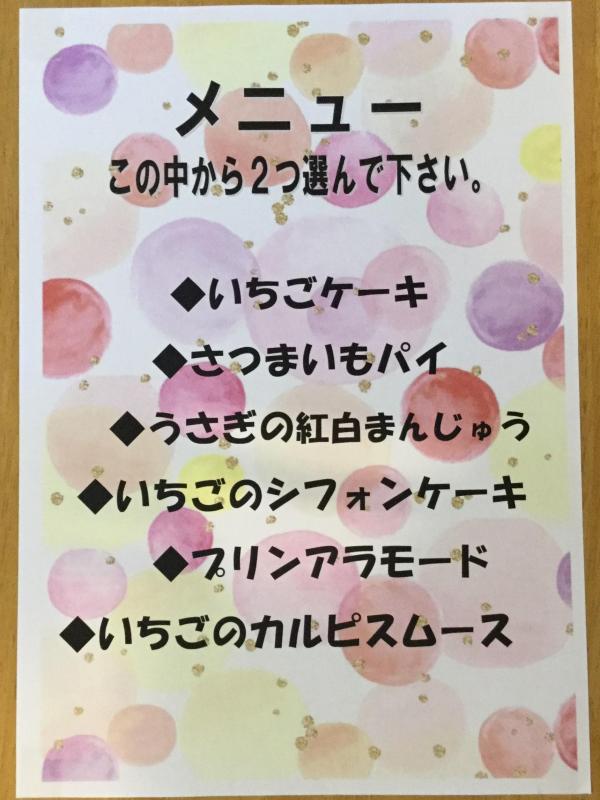 メニュー
この中から２つ選んで下さい。
◆いちごケーキ
◆さつまいもパイ
◆うさぎの紅白まんじゅう
◆いちごのシフォンケーキ
◆プリンアラモード
◆いちごのカルピスムース